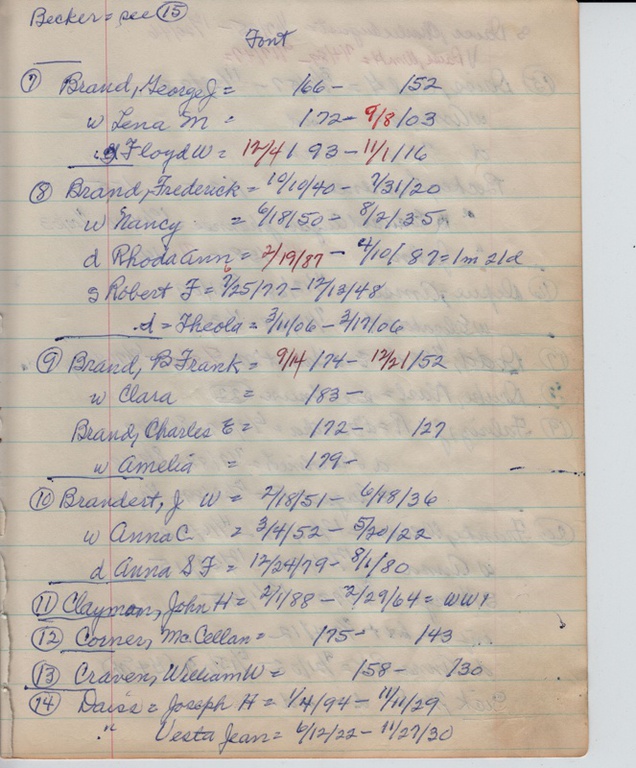 Becker = see (15)
Font
(7) Brand, George J = /66 - /52
w Lena M = /72 - 9/8/03
Floyd W = 12/4/93 - 11/1/16
(8) Brand, Frederick = 10/40 - 7/31/20
w Nancy = 6/18/50 - 8/2/35
d Rhoda Ann = 2/19/87 - 4/10/87 = 1m 21d
s Robert F = /25/77 - 12/13/48
d = Theola = 3/11/06 - 3/17/06
(9) Brand, B Frank = 9/14/74 - 12/21/52
w Clara = /83 -
Brand, Charles E = /72 - /27
w Amelia = /79 -
(10) Brandert, J W = 2/18/51 - 6/18/36
w Anna C = 3/4/52 - 5/20/22
d Anna S F = 12/24/79 - 8/1/80
(11) Clayman, John H = 2/1/88 - 2/29/64 = WW1
(12) Corner, McCellan = /75 - /43
(13) Craven, William W = /58 - /30
(14) Daiss = Joseph H = 1/4/94 - 11/11/29
" Vesta Jean = 6/12/22 - 11/27/30